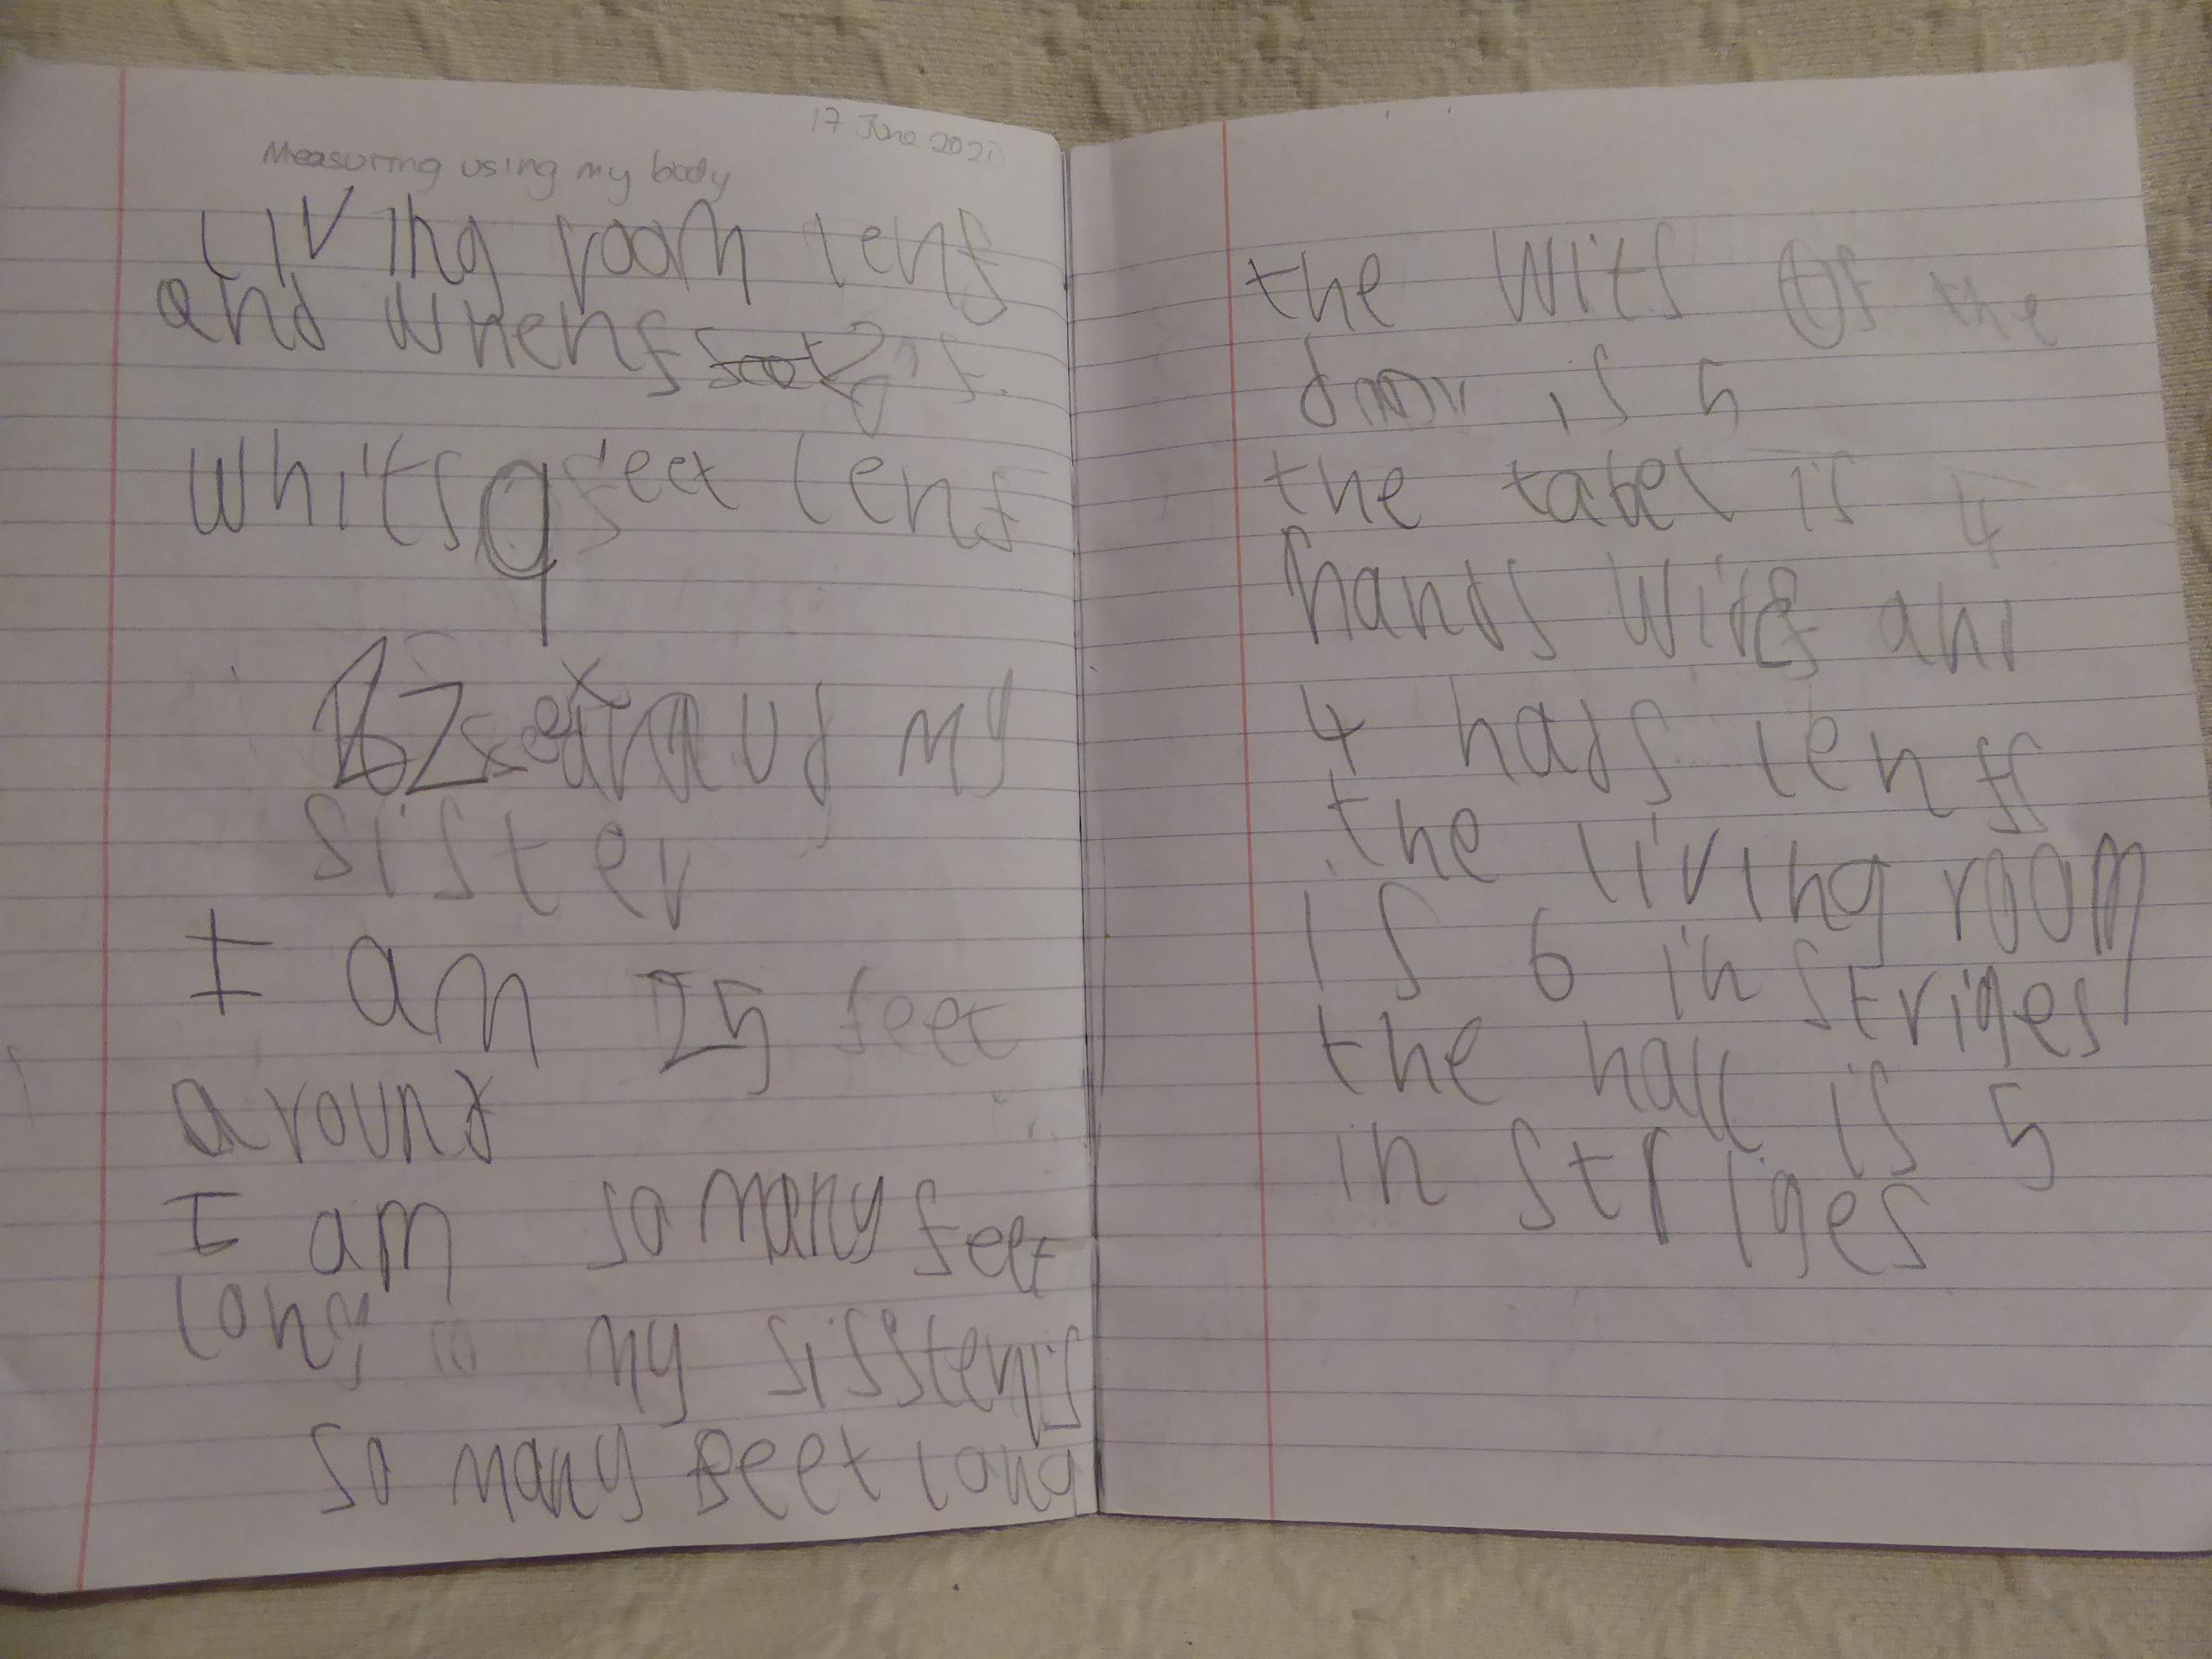 17 June 2021
Measuring using my body
living room lenf
and whenf
whitsf 9 feet lenf
feet araund my
sister
I am 25 feet
around
I am so many feet
long my sisster is
so many feet long
the witf of the
door is 5
the tabel is 4
hands witf and
4 hads lenff
the living room
is 6 in striges
the hall is 5
in striges